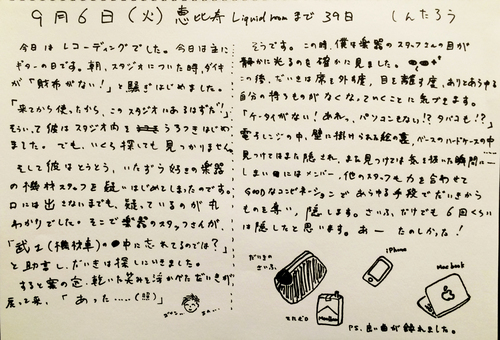 9月6日(火) 恵比寿 Liquid roomまで 39日 しんたろう
今日は レコーディングでした。今日は主に
ギターの日です。朝、スタジオについた時、ダイキ
が「財布がない!」と騒ぎはじめました。
「来てから使ったから、このスタジオにあるはずだ!」
そういって彼はスタジオ内をうろつきはじめ
ました。でも、いくら探しても見つかりません。
そして彼はとうとう、いたずら好きの楽器
の機材スタッフを疑いはじめてしまったのです。
口には出さないまでも、疑っているのが丸
わかりでした。そこで楽器のスタッフさんが、
「武士(機材車)の中に忘れてるのでは?」
と助言し、だいきは探しにいきました。
すると案の定、乾いた笑みを浮かべただいきが
戻って来、「あった……(照)」
そうです。この時、僕は楽器のスタッフさんの目が
静かに光るのを確かに見ました。
この後、だいきは席を外す度、目を離す度、ありとあらゆる
自分の持ちものがなくなってゆくことに気づきます。
「ケータイがない!ああっ、パソコンもない!?タバコも!?」
電子レンジの中、壁に掛けられた絵の裏、ベースのハードケースの中
見つけてはまた隠され、また見つけては茶を挿いた瞬間に…
しまいにはメンバー、他のスタッフも力を合わせて
GOODなコンビネーションであらゆる手段でだいきから
ものを奪い、隠します。さいふだけでも 6回くらい
は隠したと思います。あー たのしかった!
だいきの
さいふ
iPhone
Mac book
たばこ
P.S. 良い曲が録れました。